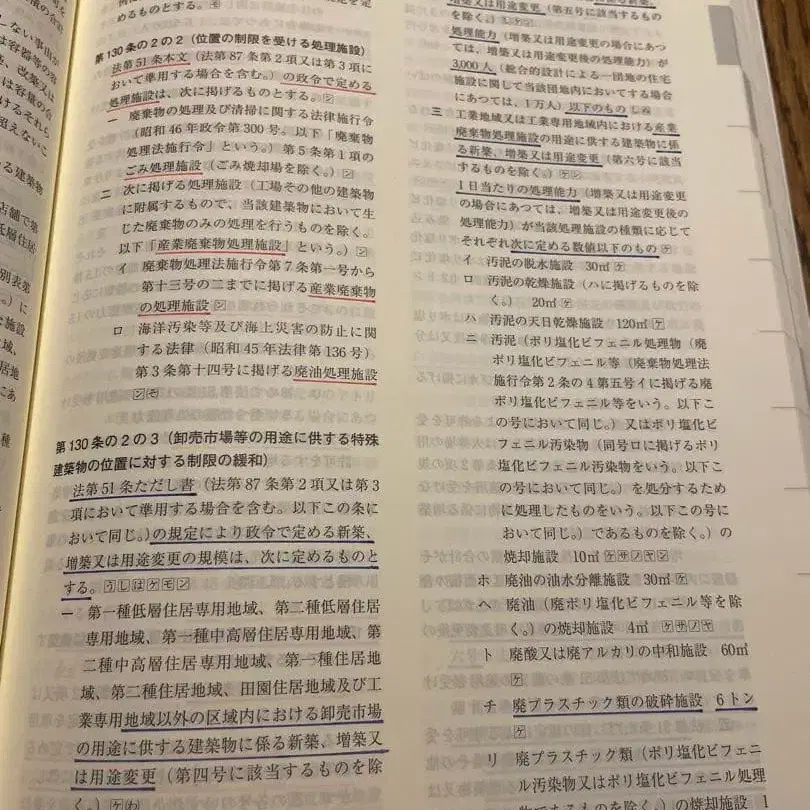 めるものとする。
第130条の2の2（位置の制限を受ける処理施設）
法第51条本文（法第87条第2項又は第3項に
おいて準用する場合を含む。）の政令で定める
処理施設は、次に掲げるものとする。
一 廃棄物の処理及び清掃に関する法律施行令
（昭和46年政令第300号。以下「廃棄物
処理法施行令」という。）第5条第1項の
ごみ処理施設（ごみ焼却場を除く。）
二 次に掲げる処理施設（工場その他の建築物
に附属するもので、当該建築物において生
じた廃棄物のみの処理を行うものを除く。
以下「産業廃棄物処理施設」という。）
イ 廃棄物処理法施行令第7条第一号から
第十三号の二までに掲げる産業廃棄物
の処理施設
ロ 海洋汚染等及び海上災害の防止に関
する法律（昭和45年法律第136号）
第3条第十四号に掲げる廃油処理施設
第130条の2の3（卸売市場等の用途に供する特殊
建築物の位置に対する制限の緩和）
法第51条ただし書（法第87条第2項又は第3
項において準用する場合を含む。以下この条に
おいて同じ。）の規定により政令で定める新築、
増築又は用途変更の規模は、次に定めるものと
する。うしはケモン
一 第一種低層住居専用地域、第二種低層住居
専用地域、第一種中高層住居専用地域、第
二種中高層住居専用地域、第一種住居地
域、第二種住居地域、田園住居地域及び工
業専用地域以外の区域内における卸売市場
の用途に供する建築物に係る新築、増築又
は用途変更（第四号に該当するものを除
く。）ケわ
増築又は用途変更（第五号に該当するもの
を除く。）
処理能力（増築又は用途変更の場合にあつ
ては、増築又は用途変更後の処理能力）が
3,000人（総合的設計による一団地の住宅
施設に関して当該団地内においてする場合
にあつては、1万人）以下のもの
三 工業地域又は工業専用地域内における産業
廃棄物処理施設の用途に供する建築物に係
る新築、増築又は用途変更（第六号に該当
するものを除く。）ケ
1日当たりの処理能力（増築又は用途変更
の場合にあつては、増築又は用途変更後の
処理能力）が当該処理施設の種類に応じて
それぞれ次に定める数値以下のものケ
イ 汚泥の脱水施設 30㎥ケ
ロ 汚泥の乾燥施設（ハに掲げるものを除
く。） 20㎥ケ
ハ 汚泥の天日乾燥施設 120㎥ケ
ニ 汚泥（ポリ塩化ビフェニル処理物（廃
ポリ塩化ビフェニル等（廃棄物処理法
施行令第2条の4第五号イに掲げる廃
ポリ塩化ビフェニル等をいう。以下こ
の号において同じ。）又はポリ塩化ビ
フェニル汚染物（同号ロに掲げるポリ
塩化ビフェニル汚染物をいう。以下こ
の号において同じ。）を処分するため
に処理したものをいう。以下この号に
おいて同じ。）であるものを除く。）の
焼却施設 10㎥ケサノヤン
ホ 廃油の油水分離施設 30㎥ケ
ヘ 廃油（廃ポリ塩化ビフェニル等を除
く。）の焼却施設 4㎥ケサノヤ
ト 廃酸又は廃アルカリの中和施設 60㎥
ケ
チ 廃プラスチック類の破砕施設 6トン
ケ
リ 廃プラスチック類（ポリ塩化ビフェニ
ル汚染物又はポリ塩化ビフェニル処理
物であるものを除く。）の焼却施設 1